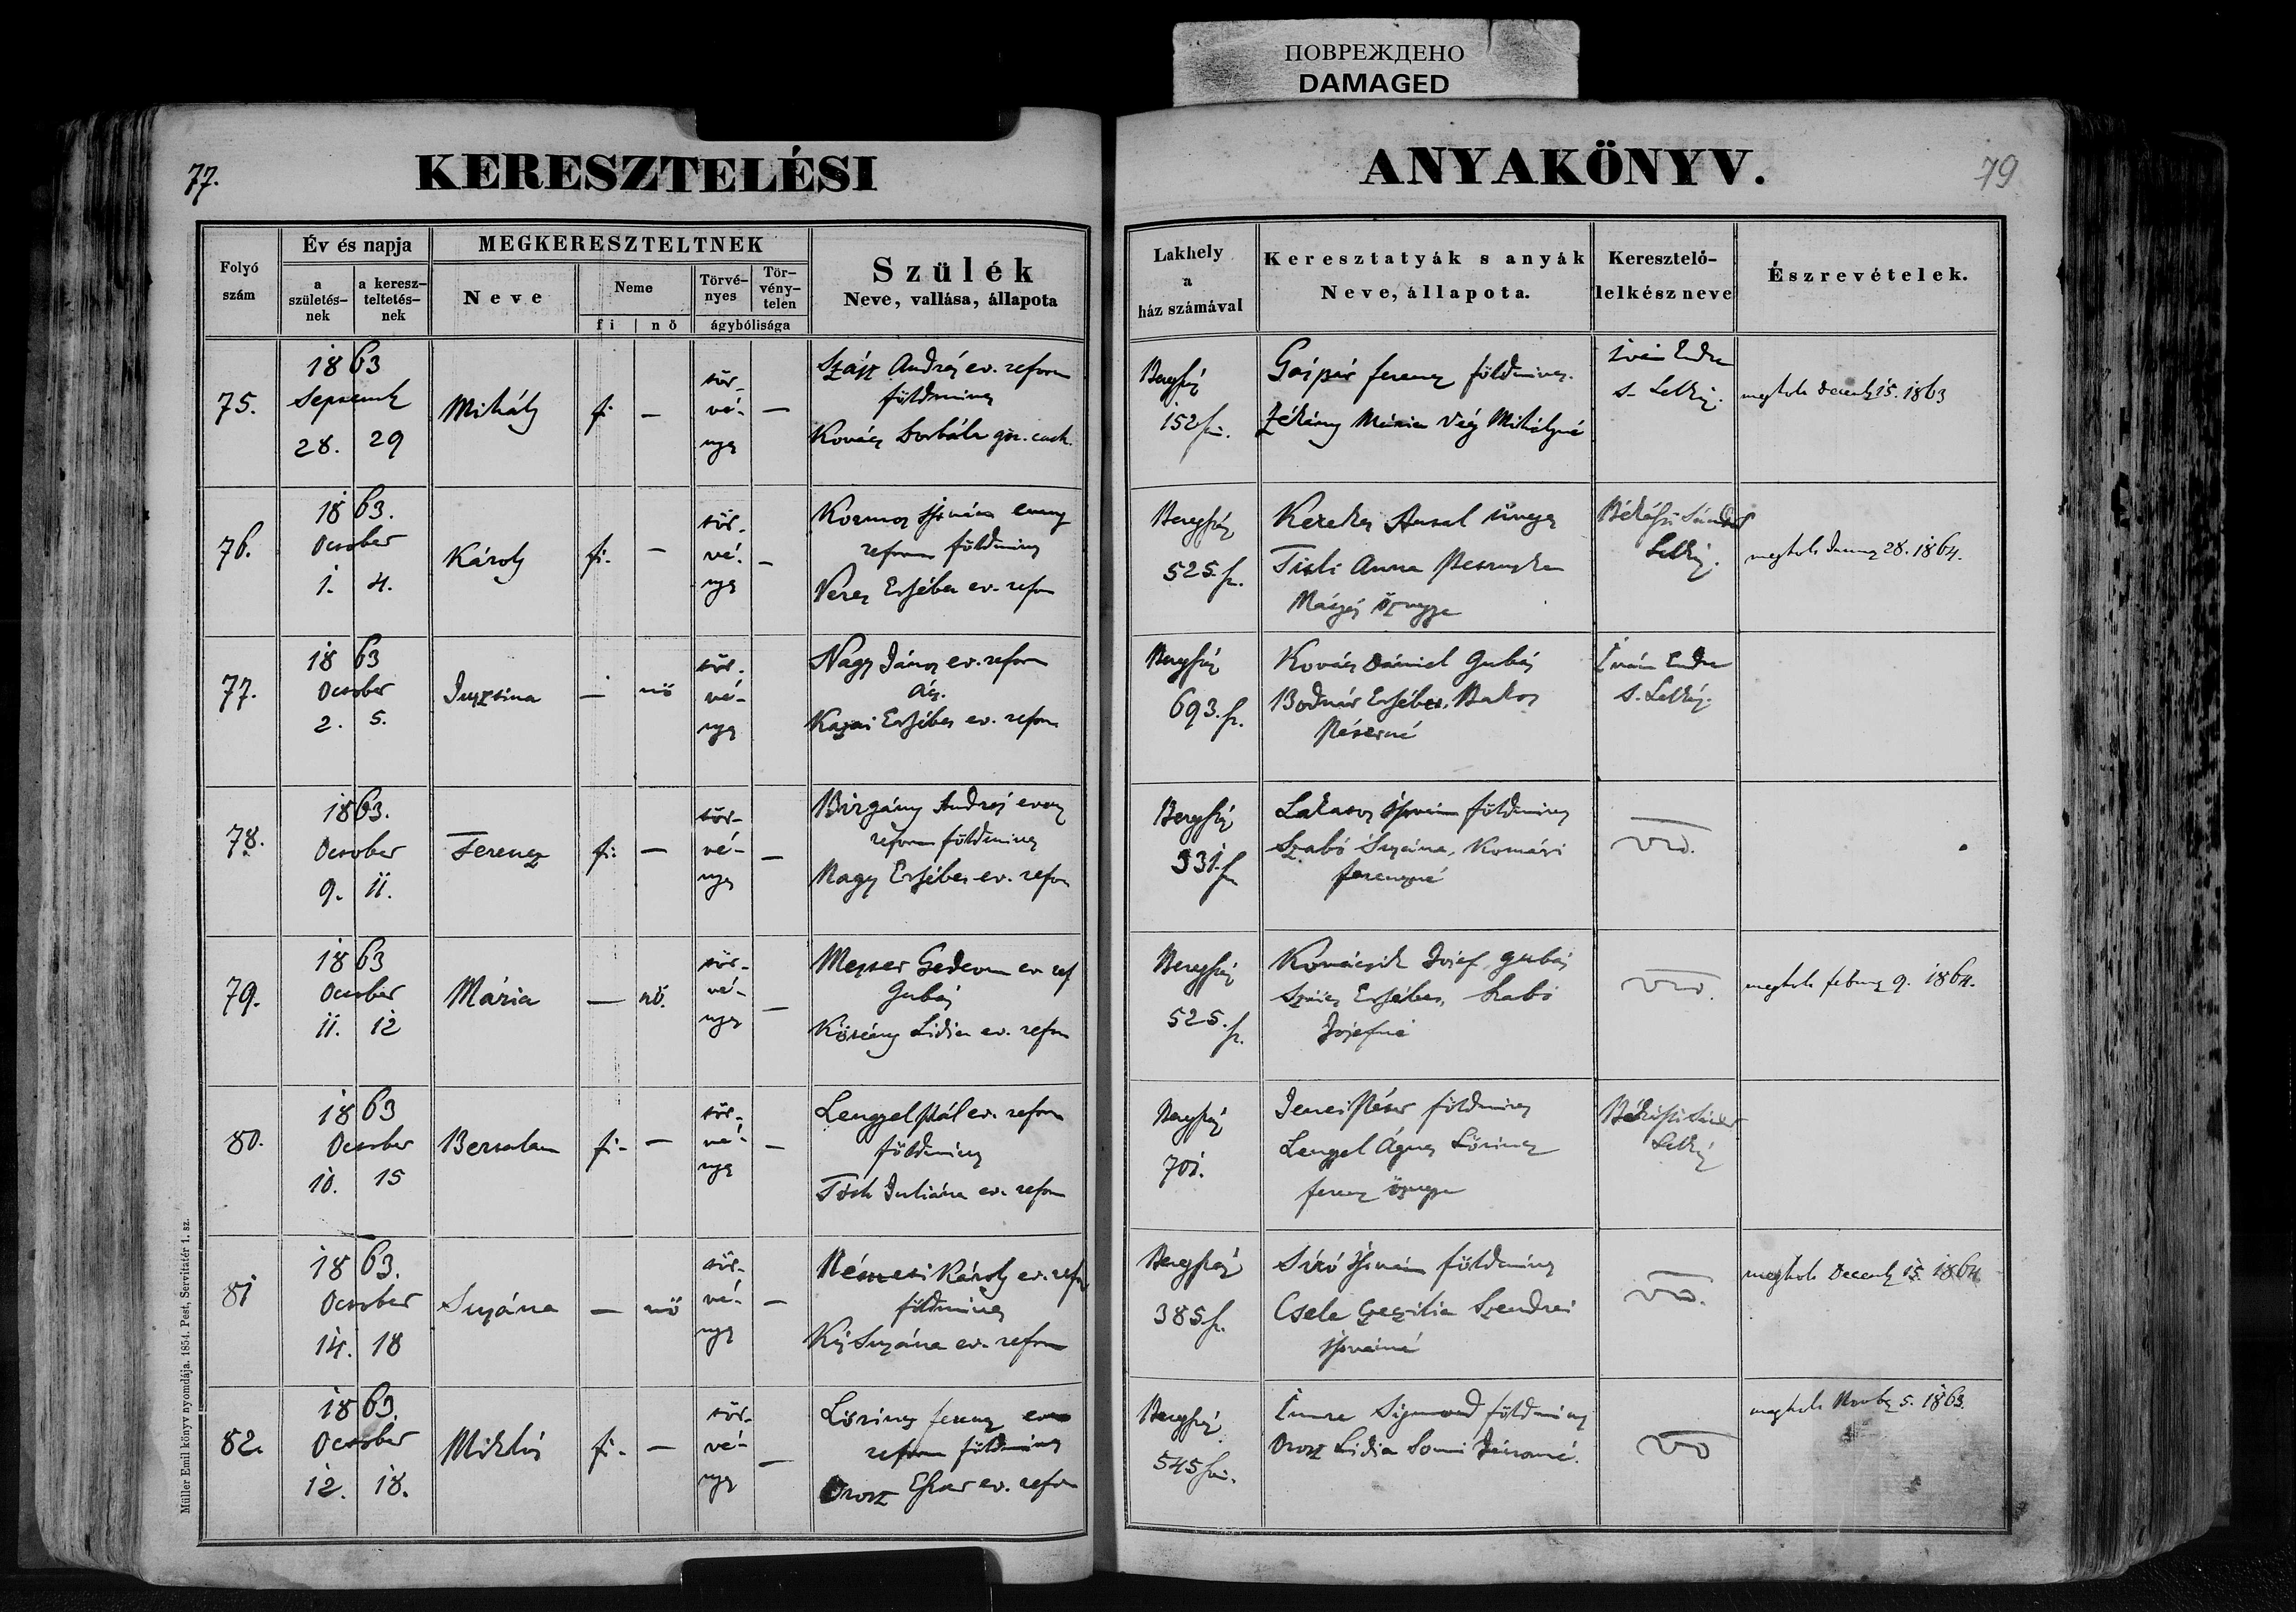 ПОВРЕЖДЕНО
DAMAGED
77.
KERESZTELÉSI
ANYAKÖNYV.
79
Folyó szám
Év és napja
a születés-nek
a keresz-teltetés-nek
MEGKERESZTELTNEK
Neve
Neme
fi | nő
Törvé-nyes
Tör-vény-telen
ágybólisága
Szülék
Neve, vallása, állapota
Lakhely
a
ház számával
Keresztatyák s anyák
Neve, állapota.
Keresztelő-
lelkész neve
Észrevételek.
75.
1863
Septemb
28. 29
Mihály
fi —
tör-
vé-
nyes
—
András ev. reform
földmives
Kovács Borbála gör. cath.
Beregszász
152 sz.
Gáspár Ferencz földmives.
Mária Vég Mihályné
Iván Endre
s. Lelkész.
megholt Decemb 15. 1863
76.
1863.
October
1. 4.
Károly
fi. —
tör-
vé-
nyes
—
Kozmos István evang
reform földmives
Veres Ersébet ev. refor
Beregszász
525. sz.
Kerekes Antal
Anna
özvegye
Békássi Sándor
Lelkész.
megholt Januar 28. 1864.
77.
1863
October
2. 5.
Jusztina
— nö
tör-
vé-
nyes
Nagy János ev. reform
Ács.
Kazai Ersébet ev. reform
Beregszász
693. sz.
Kovács Dániel Gubás
Bodnár Ersébet, Bakos
Péterné
Iván Endre
s. Lelkész.
78.
1863.
October
9. 11.
Ferencz
fi: —
tör-
vé-
nyes
—
Birgány András evang
reform földmives
Nagy Ersébet ev. refor
Beregszász
331. sz
Lakatos István földmives
Szabó Susána, Komári
Ferenczné
79.
1863
October
11. 12
Mária
— nö.
tör-
vé-
nyes
—
Mester Gedeon ev ref
Gubás
Kötény Lidia ev. refor
Beregszász
525. sz.
Kovácsik Josef, gubás
Szűcs Ersébet, Szabó
Josefné
megholt februar 9. 1864.
80.
1863
October
10. 15
Bertalan
fi- —
tör-
vé-
nyes
—
Lengyel Pál ev. reform
földmives
Tóth Juliána ev. reform
Beregszász
701.
Jenei Péter földmives
Lengyel Ágnes Lőrincz
ferencz özvegye
Békássi Sándor
Lelkész
81
1863.
October
14. 18
Susána
— nö
tör-
vé-
nyes
—
Németi Károly ev. refor
földmives
Kis Susána ev. reform
Beregszász
385 sz.
Siró István földmives
Csele Czeczilia Szendrei
Istvánné
megholt Decemb 15. 1864
82.
1863.
October
12. 18.
Miklós
fi. —
tör-
vé-
nyes
—
Lőrincz ferencz evan
reform földmives
Orosz Eszter ev. refor
Beregszász
545 sz.
Imre Sigmond földmives
Orosz Lidia Jánosné.
megholt Novbr 5. 1863.
Müller Emil könyv nyomdája. 1854. Pest, Servitatér 1. sz.